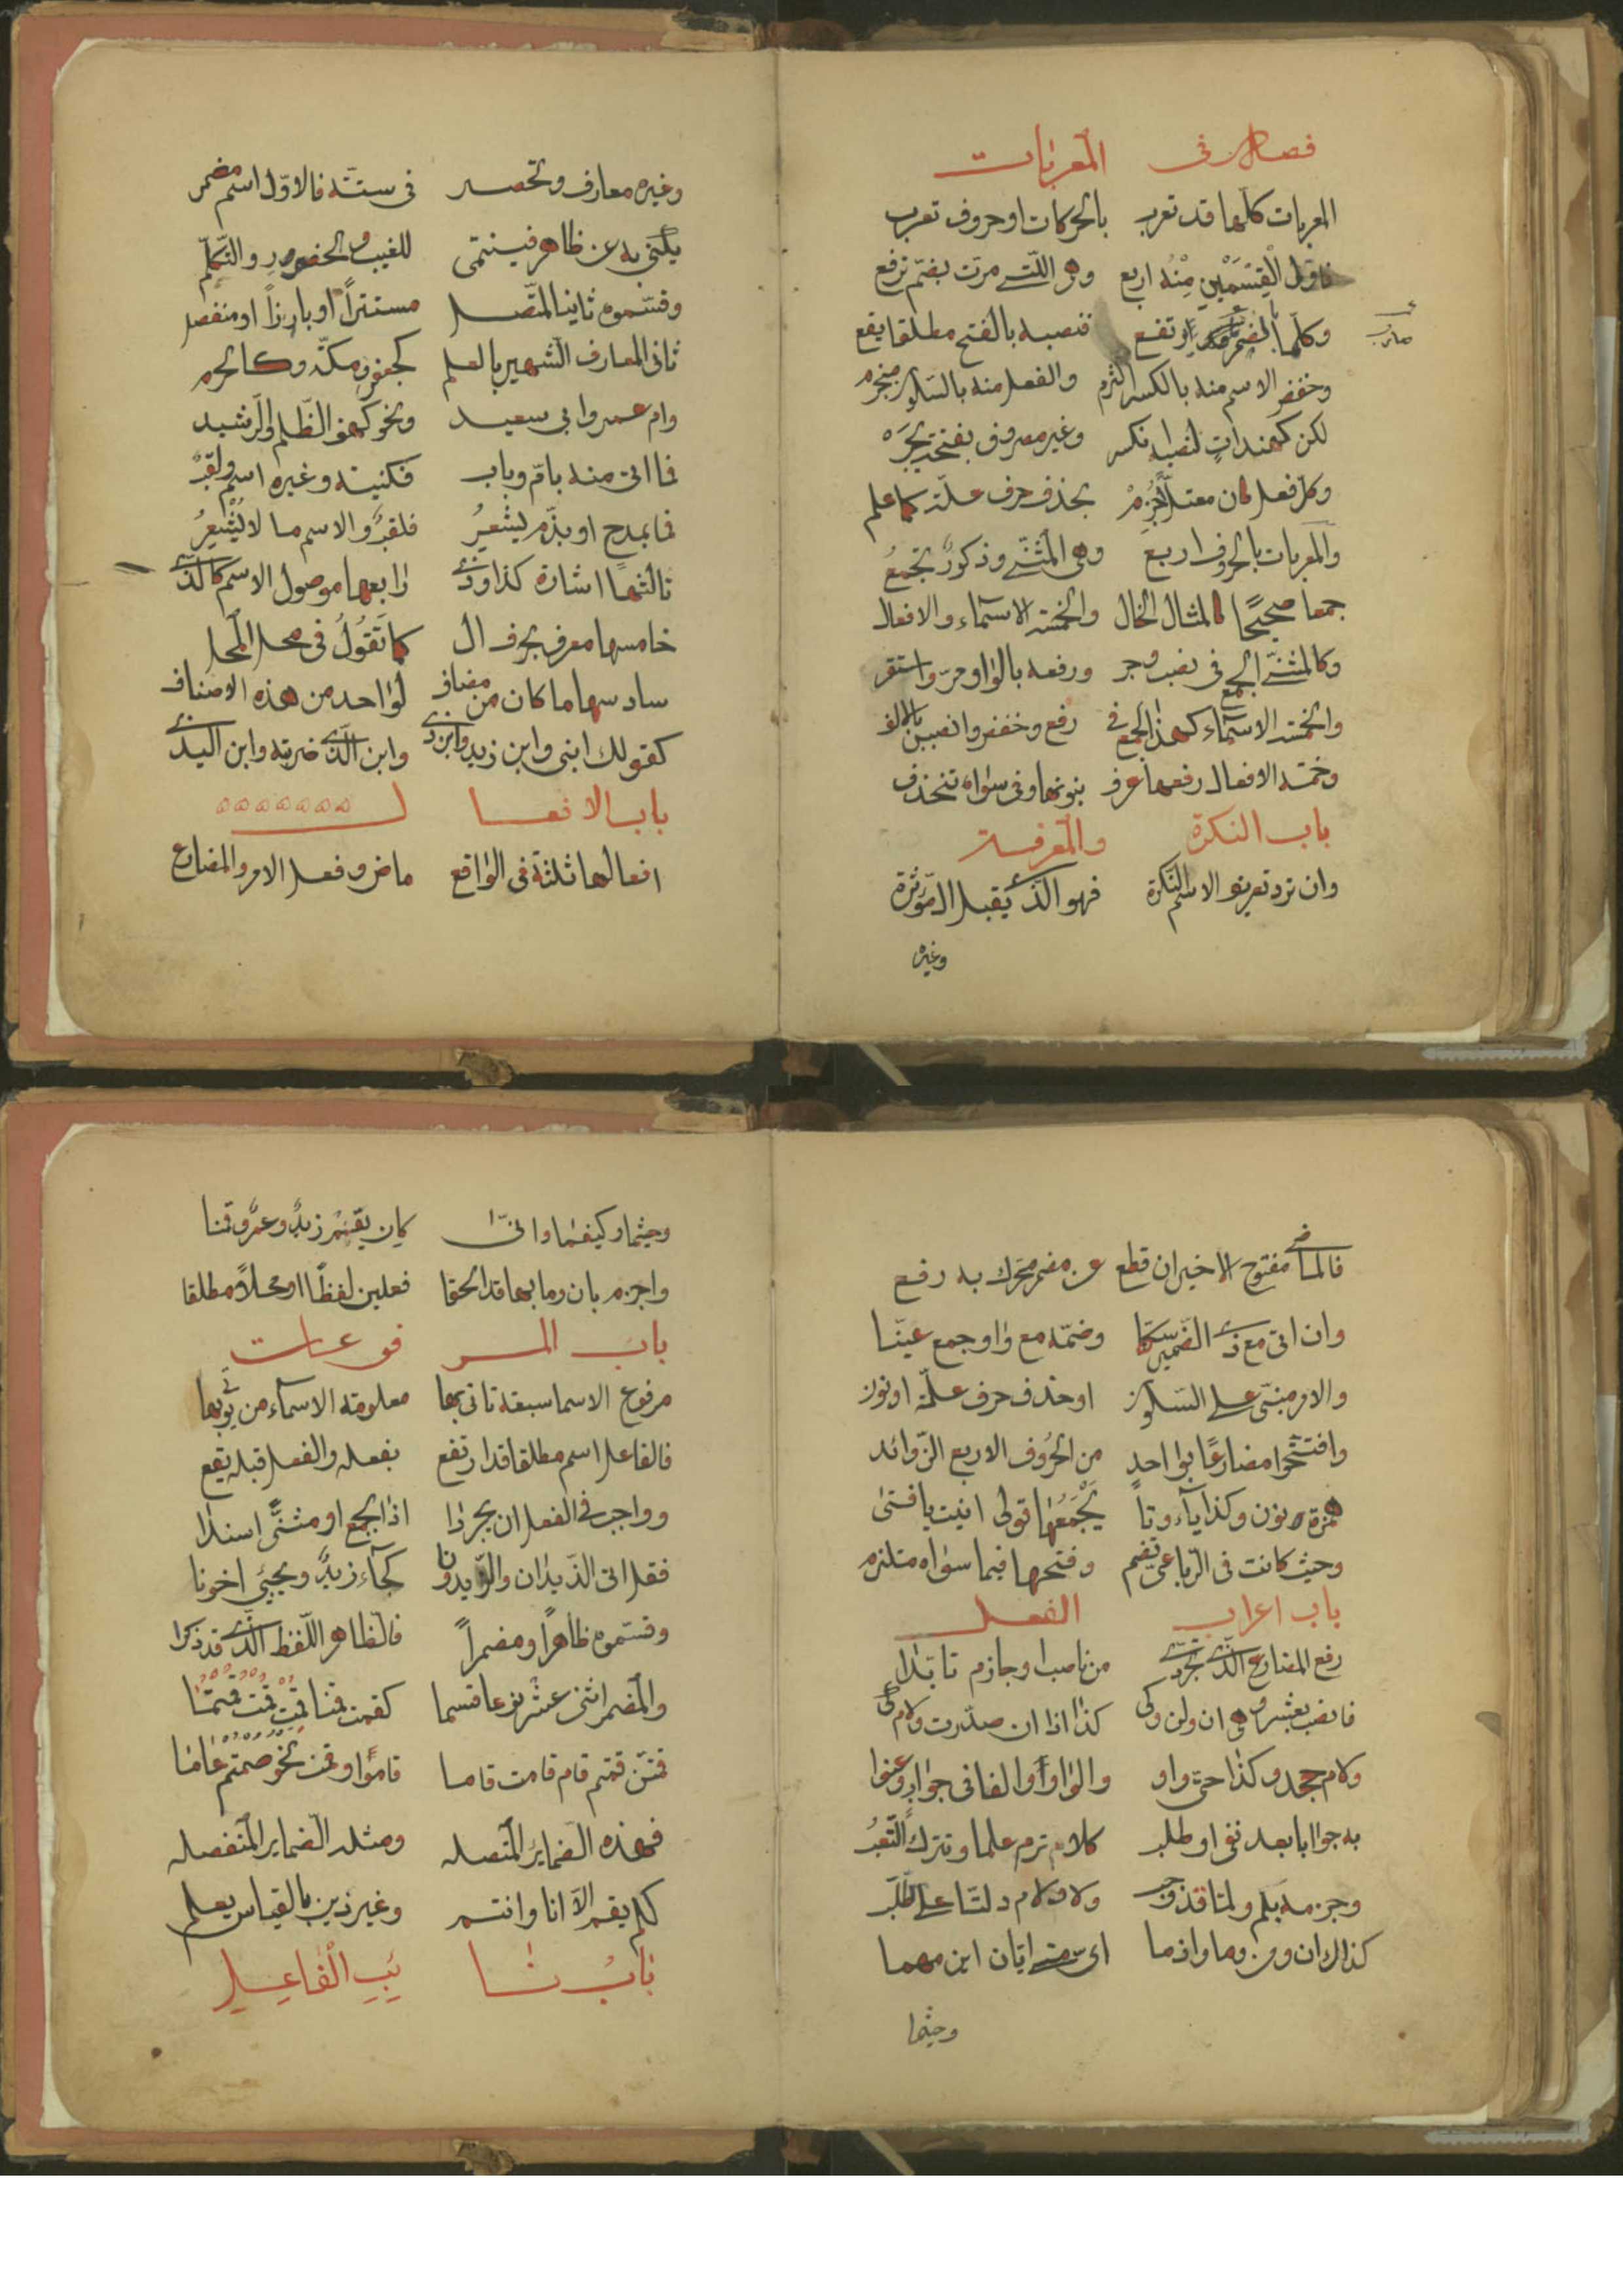 فصل في المعربات
المعربات كلها قد تعرب بالحركات او حروف تعرب
فاول القسمين منه اربع وهى التي مرت بضم ترفع
وكلما بالضم قد ارتفع فنصبه بالفتح مطلقا يقع
وخفض الاسم منه بالكسر التزم والفعل منه بالسكون منجزم
لكن كهندات لنصبه انكسر وغير مصروف بفتحة يجره
وكل فعل كان معتلا جزم بحذف حرف علة كما علم
والمعربات بالحروف اربع وهى المثنى وذكور تجمع
جمعا صحيحا كالمثال الخال والخمسة الاسماء والافعال
وكالمثنى الجمع في نصب وجر ورفعه بالواو مر واستقر
والخمسة الاسماء كهذا الجمع في رفع وخفض وانصبن بالالف
وخمسة الافعال رفعها عرف بنونها وفي سواه تنحذف
باب النكرة والمعرفة
وان ترد تعريف الاسم النكرة فهو الذي يقبل ال موثرة
وغيره
وغيره معارف وتحصر في ستة فالاول اسم مضمر
يكنى به عن ظاهر فينتمي للغيب والحضور والتكلم
وقسموه ثانيا لمتصل مستترا او بارزا او منفصل
ثاني المعارف الشهير بالعلم كجعفر ومكة وكالحرم
وام عمرو وابي سعيد ونحو كهف الظلم والرشيد
فما اتى منه بام وباب فكنية وغيره اسم ولقب
فما بمدح او بذم يشعر فلقب والاسم ما لا يشعر
ثالثها اشارة كذا وذي رابعها موصول الاسم كالذي
خامسها معرف بحرف ال كما تقول في محل المحل
سادسها ما كان من مضاف لواحد من هذه الاصناف
كقولك ابني وابن زيد وابن ذي وابن الذي ضربته وابن البذي
باب الافعال
افعالها ثلثة في الواقع ماض وفعل الامر والمضارع
فالماضي مفتوح الاخير ان قطع عن مضمر محرك به رفع
وان اتى مع ذي الضمير سكنا وضمه مع واو جمع عينا
والامر مبني على السكون او حذف حرف علة او نون
وافتتحوا مضارعا بواحد من الحروف الاربع الزوائد
همزة ونون وكذا ياء وتا يجمعها قولي انيت يا فتى
وحيث كانت في الرباعي تضم وفتحها فيما سواه ملتزم
باب اعراب الفعل
رفع المضارع الذي تجردي من ناصب وجازم تابدا
فانصب بعشر وهي ان ولن وكي كذا اذا ان صدرت ولام كي
ولام جحد وكذا حتى واو والواو والفا في جواب وعنوا
به جوابا بعد نفي او طلب كلا ترم علما وتترك التعب
وجزمه بلم ولما قد وجب ولا ولام دلتا على الطلب
كذاك ان ومن وما واذما اي متى ايان اين مهما
وحيثما
وحيثما وكيفما واني كان يقم زيد وعمرو قمنا
واجزم بان وما بها قد الحقا فعلين لفظا او محلا مطلقا
باب المرفوعات
مرفوع الاسما سبعة تاتي بها معلومة الاسماء من تبويبها
فالفاعل اسم مطلقا قد ارتفع بفعله والفعل قبله يقع
وواجب في الفعل ان يجردا اذا لجمع او مثنى اسندا
فقل اتى الزيدان والزيدونا كجاء زيد ويجيئ اخونا
وقسموه ظاهرا ومضمرا فالظاهر اللفظ الذي قد ذكرا
والمضمر اثنى عشر نوعا قسما كقمت قمنا قمت قمت قمتما
قمتن قمتم قام قامت قاما قاموا وقمن نحو صمتم عاما
فهذه الضماير المتصله ومثله الضماير المنفصله
كلم يقم الا انا وانتم وغير ذين بالقياس يعلم
باب نائب الفاعل